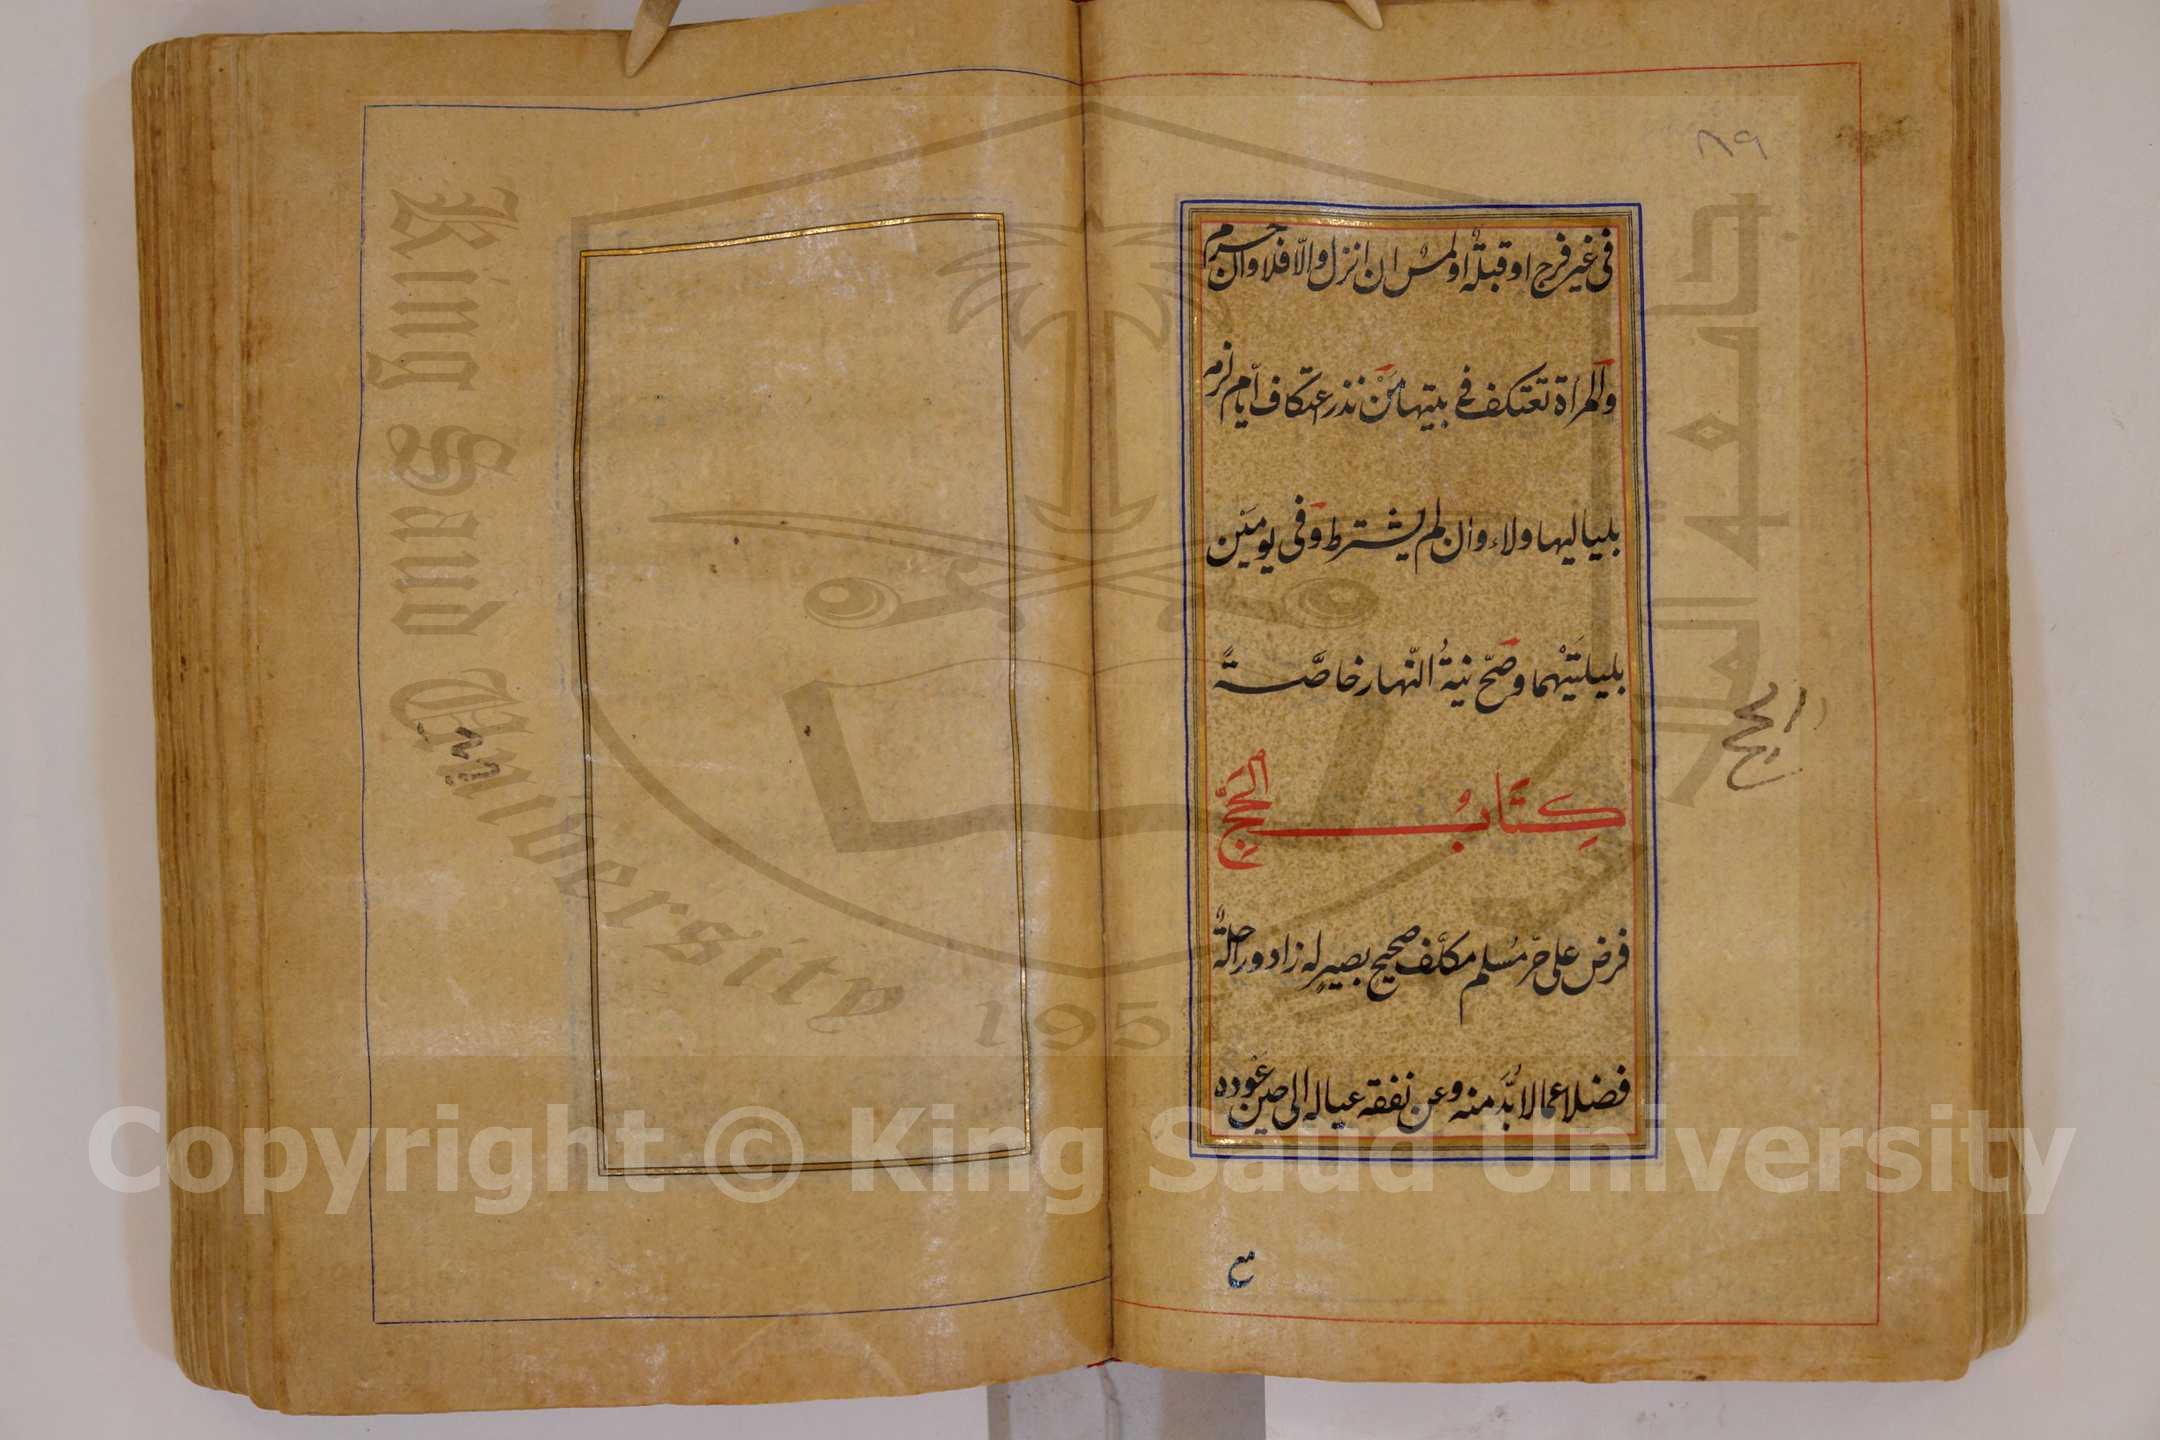 ٨٩
في غير فرج او قبلة او لمس ان انزل والّا فلا وان حرم
والمرأة تعتكف في بيتها من نذر اعتكاف ايّام لزمه
بلياليها ولاء وان لم يشترط وفى يومين
بليلتيهما وصحّ نيةُ النّهار خاصّةً
كِتَابُ الحَجِّ
الحج
فرض على حرّ مسلم مكلّف صحيح بصيرٍ له زاد وراحلةٌ
فضلا عما لا بُدَّ منه وعن نفقة عياله الى حين عَوده
King Saud University
جامعة الملك سعود
195
Copyright © King Saud University